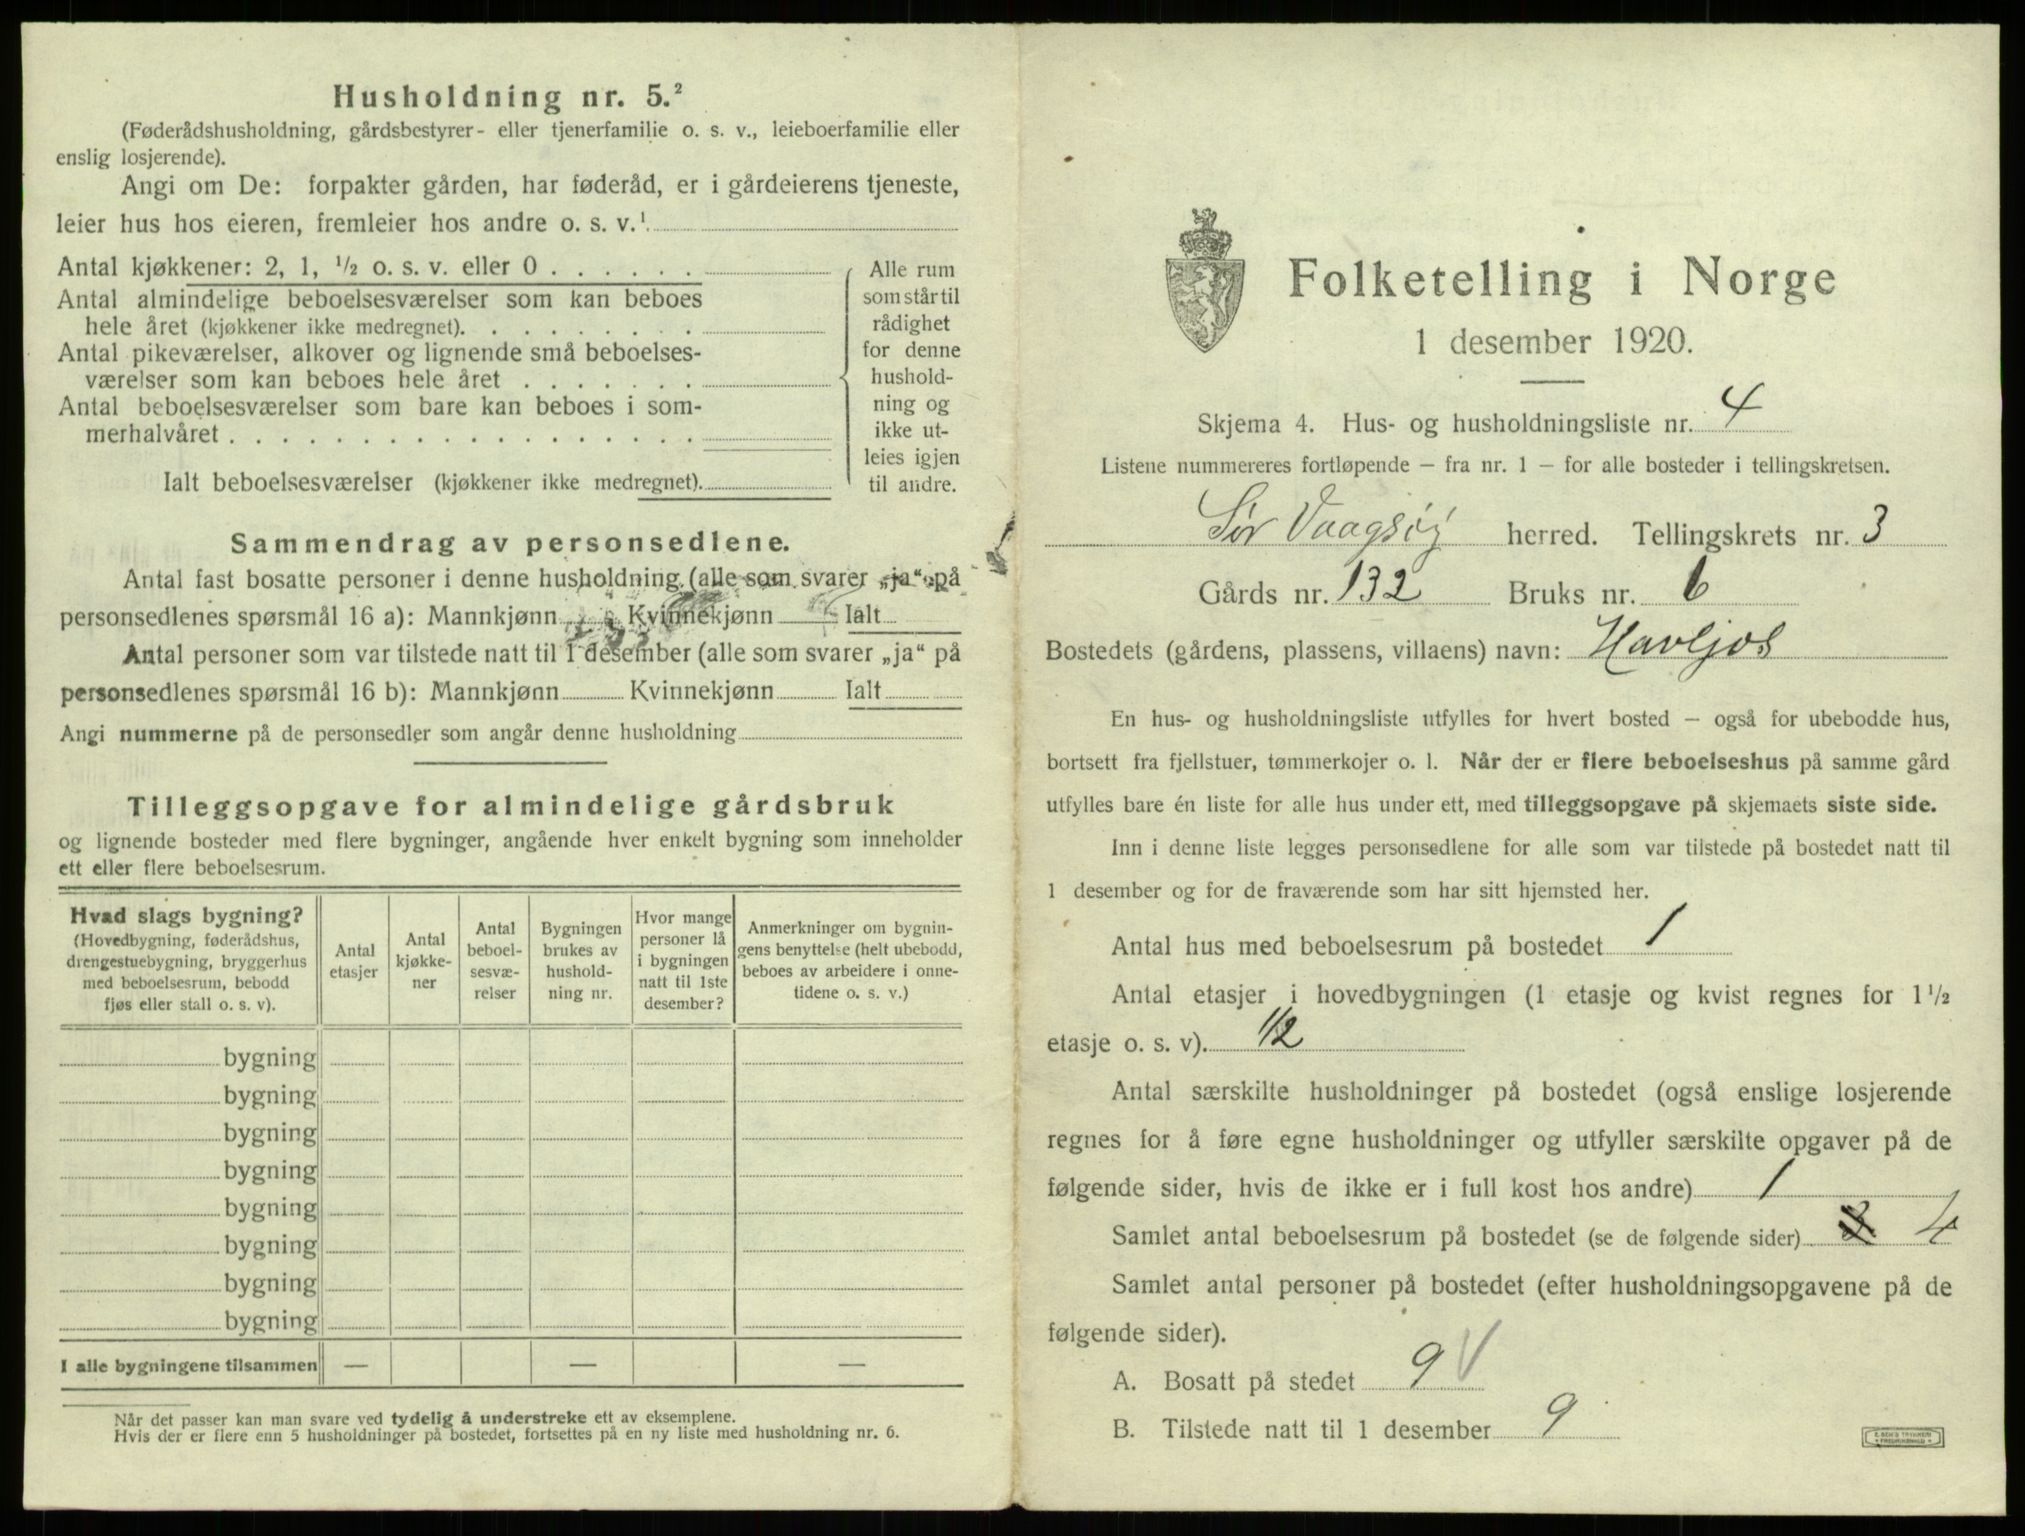 Husholdning nr. 5.²
(Føderådshusholdning, gårdsbestyrer- eller tjenerfamilie o. s. v., leieboerfamilie eller
enslig losjerende).
Angi om De: forpakter gården, har føderåd, er i gårdeierens tjeneste,
leier hus hos eieren, fremleier hos andre o. s. v.¹
Antal kjøkkener: 2, 1, ½ o. s. v. eller 0 . . . . . .
Antal almindelige beboelsesværelser som kan beboes
hele året (kjøkkener ikke medregnet). . . . . . . . .
Antal pikeværelser, alkover og lignende små beboelses-
værelser som kan beboes hele året . . . . . . .
Antal beboelsesværelser som bare kan beboes i som-
merhalvåret . . . . . . . . . . . . . . . . . .
Ialt beboelsesværelser (kjøkkener ikke medregnet).
Alle rum
som står til
rådighet
for denne
hushold-
ning og
ikke ut-
leies igjen
til andre.
Sammendrag av personsedlene.
Antal fast bosatte personer i denne husholdning (alle som svarer „ja“ på
personsedlenes spørsmål 16 a): Mannkjønn Kvinnekjønn Ialt
Antal personer som var tilstede natt til 1 desember (alle som svarer „ja“ på
personsedlenes spørsmål 16 b): Mannkjønn Kvinnekjønn Ialt
Angi nummerne på de personsedler som angår denne husholdning
Tilleggsopgave for almindelige gårdsbruk
og lignende bosteder med flere bygninger, angående hver enkelt bygning som inneholder
ett eller flere beboelsesrum.
Hvad slags bygning?
(Hovedbygning, føderådshus,
drengestuebygning, bryggerhus
med beboelsesrum, bebodd
fjøs eller stall o. s. v).
Antal
etasjer
Antal
kjøkke-
ner
Antal
beboel-
sesvæ-
relser
Bygningen
brukes av
hushold-
ning nr.
Hvor mange
personer lå
i bygningen
natt til 1ste
desember?
Anmerkninger om bygnin-
gens benyttelse (helt ubebodd,
beboes av arbeidere i onne-
tidene o. s. v.)
bygning
bygning
bygning
bygning
bygning
bygning
bygning
bygning
I alle bygningene tilsammen — — —
Når det passer kan man svare ved tydelig å understreke ett av eksemplene.
Hvis der er flere enn 5 husholdninger på bostedet, fortsettes på en ny liste med husholdning nr. 6.
Folketelling i Norge
1 desember 1920.
Skjema 4. Hus- og husholdningsliste nr. 4
Listene nummereres fortløpende – fra nr. 1 – for alle bosteder i tellingskretsen.
Sør Vaagsøy herred. Tellingskrets nr. 3
Gårds nr. 132 Bruks nr. 6
Bostedets (gårdens, plassens, villaens) navn: Havljos
En hus- og husholdningsliste utfylles for hvert bosted – også for ubebodde hus,
bortsett fra fjellstuer, tømmerkojer o. l. Når der er flere beboelseshus på samme gård
utfylles bare én liste for alle hus under ett, med tilleggsopgave på skjemaets siste side.
Inn i denne liste legges personsedlene for alle som var tilstede på bostedet natt til
1 desember og for de fraværende som har sitt hjemsted her.
Antal hus med beboelsesrum på bostedet 1
Antal etasjer i hovedbygningen (1 etasje og kvist regnes for 1½
etasje o. s. v). 1½
Antal særskilte husholdninger på bostedet (også enslige losjerende
regnes for å føre egne husholdninger og utfyller særskilte opgaver på de
følgende sider, hvis de ikke er i full kost hos andre) 1
Samlet antal beboelsesrum på bostedet (se de følgende sider) 3 4
Samlet antal personer på bostedet (efter husholdningsopgavene på de
følgende sider).
A. Bosatt på stedet 9 V
B. Tilstede natt til 1 desember 9